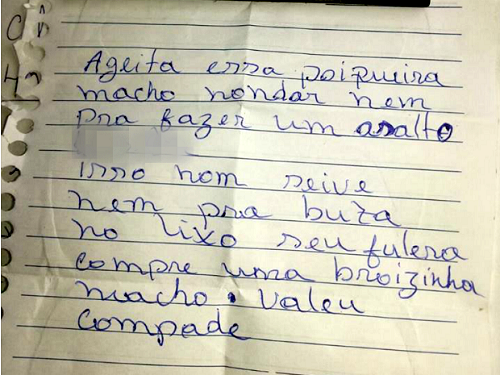 Ageita essa poipueira
macho nondar nem
pra fazer um asalto
isso nom seive
nem pra buta
no lixo seu fulera
compre uma broizinha
macho. valeu
compade